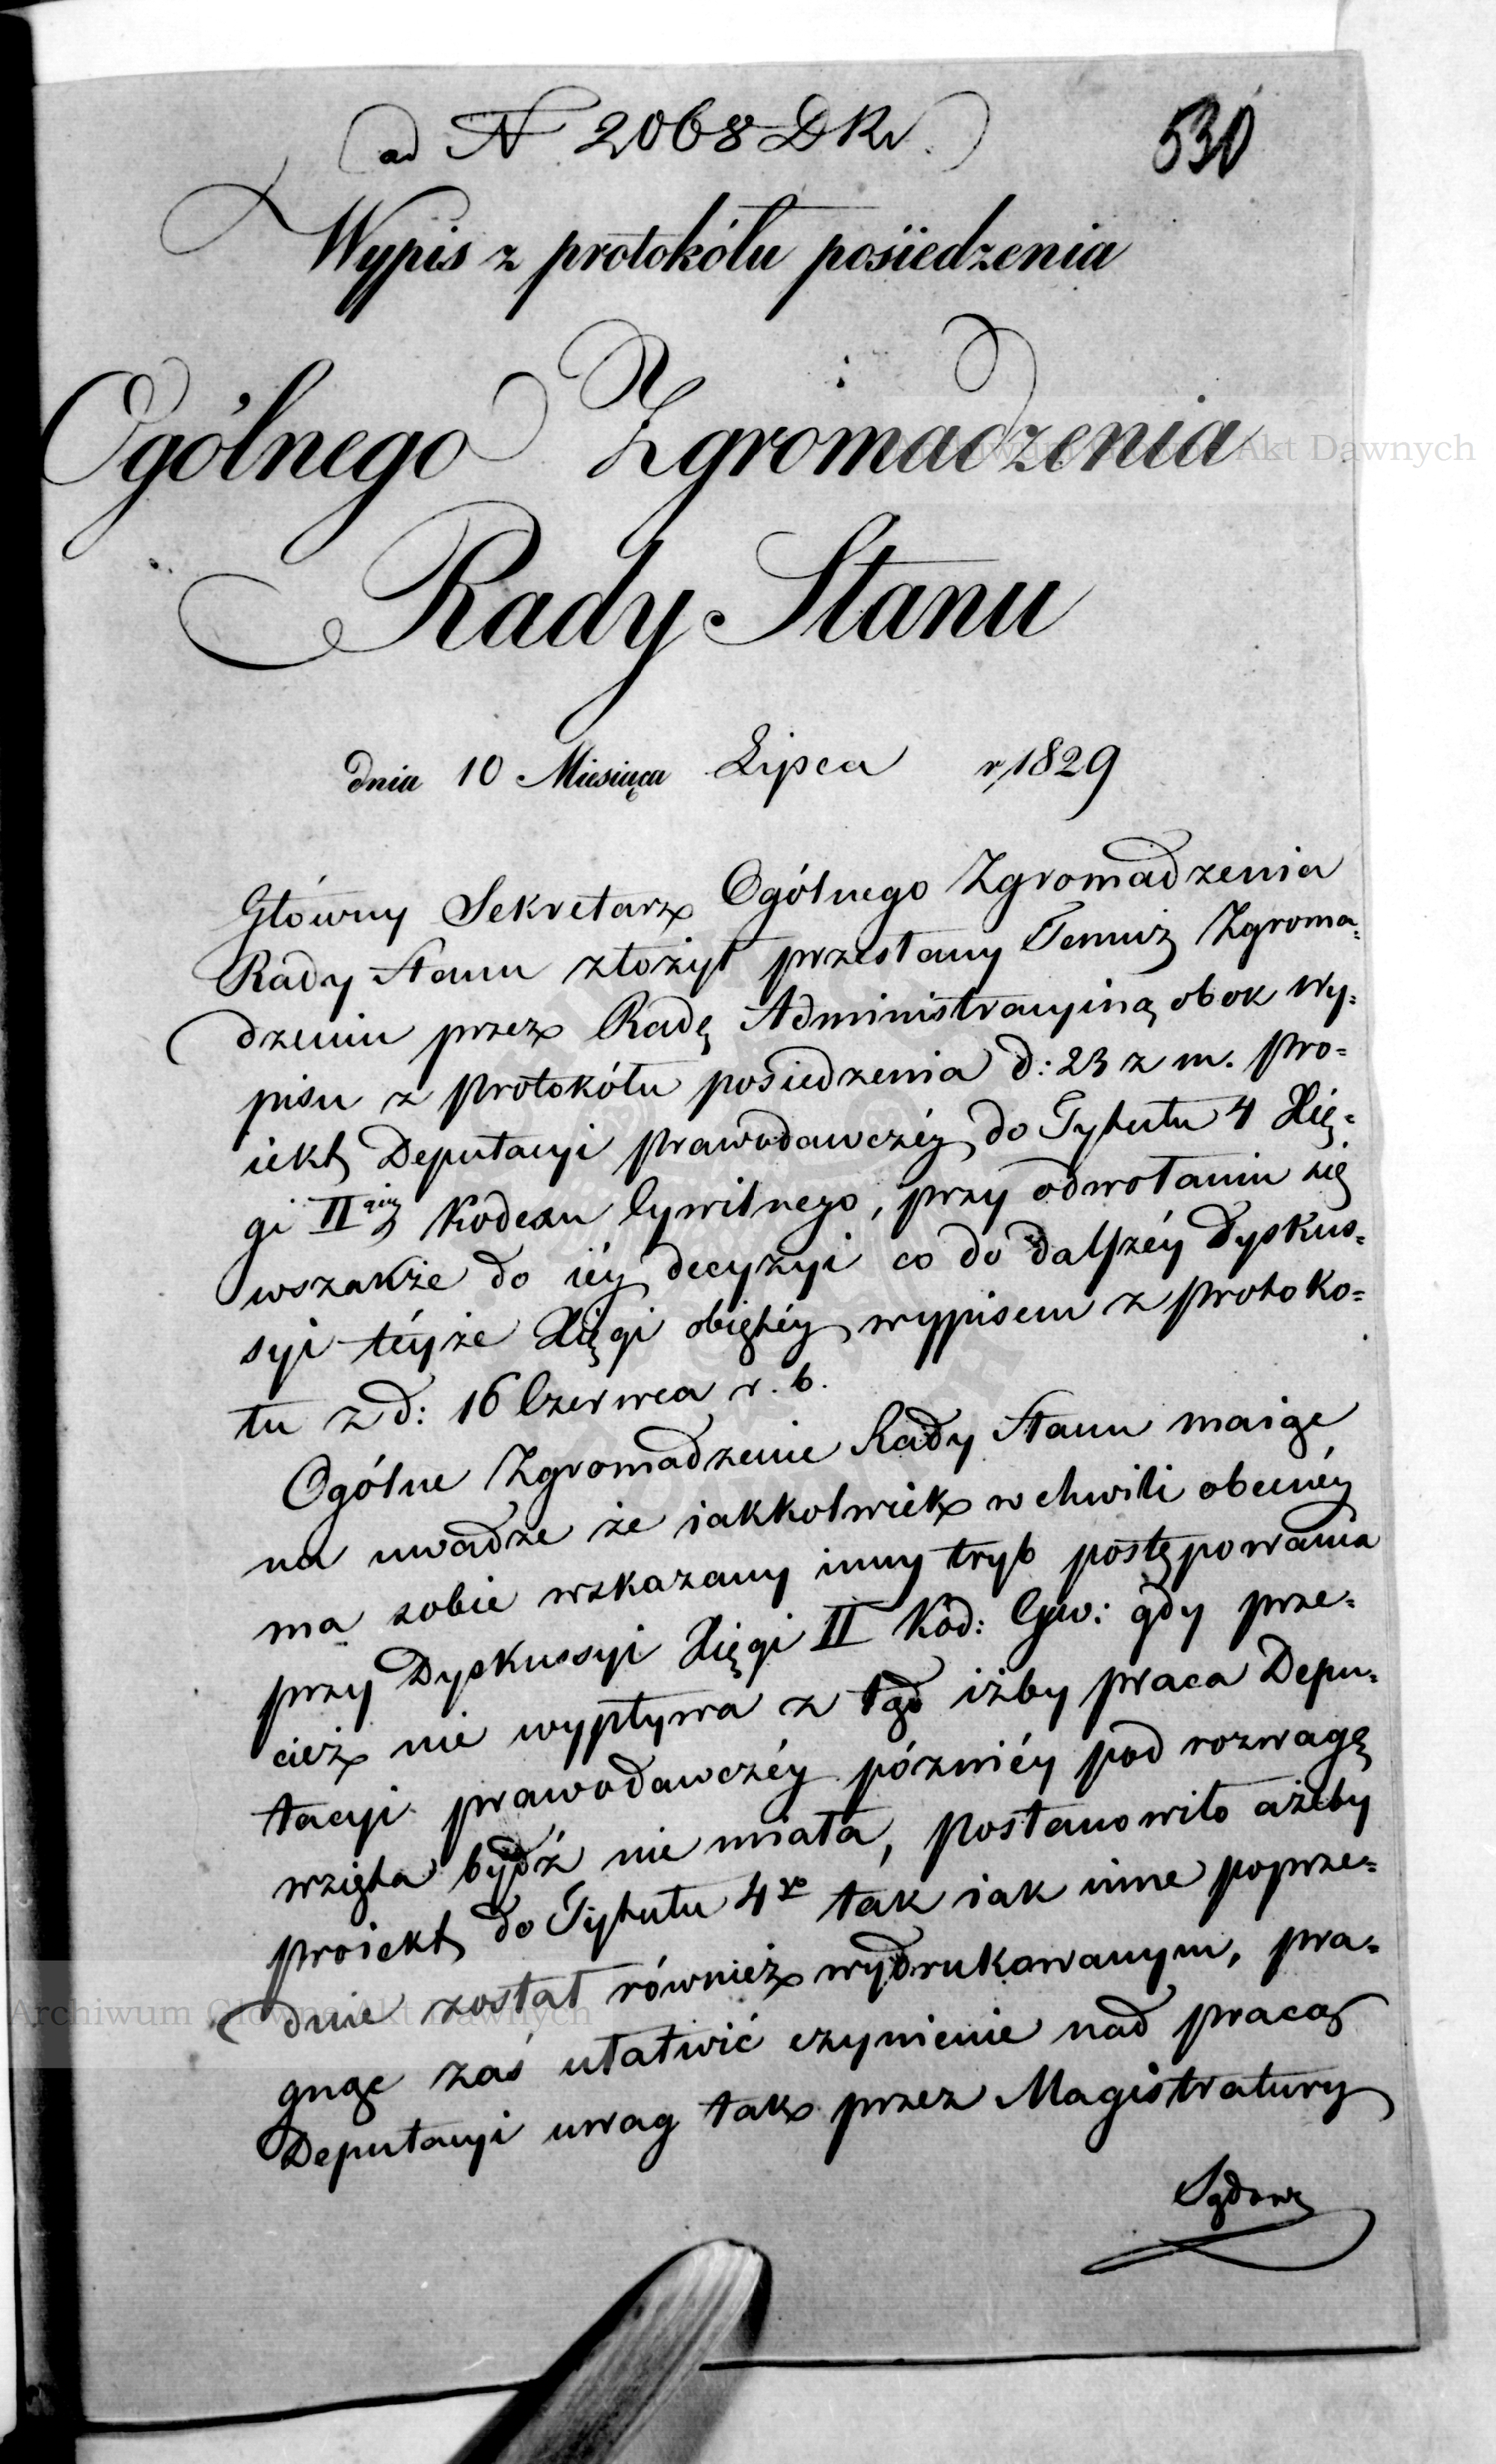 ad N 2068 DKr.
530
Wypis z protokółu posiedzenia
Ogólnego Zgromadzenia
Rady Stanu
dnia 10 Miesiąca Lipca r. 1829
Główny Sekretarz Ogólnego Zgromadzenia
Rady Stanu złożył przesłany Temuż Zgroma=
dzeniu przez Radę Administracyiną obok wy=
pisu z protokółu posiedzenia d: 23 z m. pro=
iekt Deputacyi prawodawczéy do Tytułu 4 Xię=
gi II giéy Kodexu Cywilnego, przy odwołaniu się
wszakże do iéy decyzyi co do dalszéy dyskus=
syi téyże Xięgi obiętéy wypisem z protokó=
łu z d: 16 Czerwca r. b.
Ogólne Zgromadzenie Rady Stanu maiąc
na uwadze że iakkolwiek w chwili obecnéy
ma sobie wskazany inny tryb postępowania
przy Dyskussyi Xięgi II Kod: Cyw: gdy prze=
cież nie wypływa z tąd iżby praca Depu=
tacyi prawodawczéy późniéy pod rozwagę
wziętą bydź nie miała, postanowiło ażeby
proiekt do Tytułu 4go tak iak inne poprze=
dnie został również wydrukowanym, pra=
gnąc zaś ułatwić czynienie nad pracą
Deputacyi uwag tak przez Magistratury
Sądowe
Archiwum Główne Akt Dawnych
Archiwum Główne Akt Dawnych